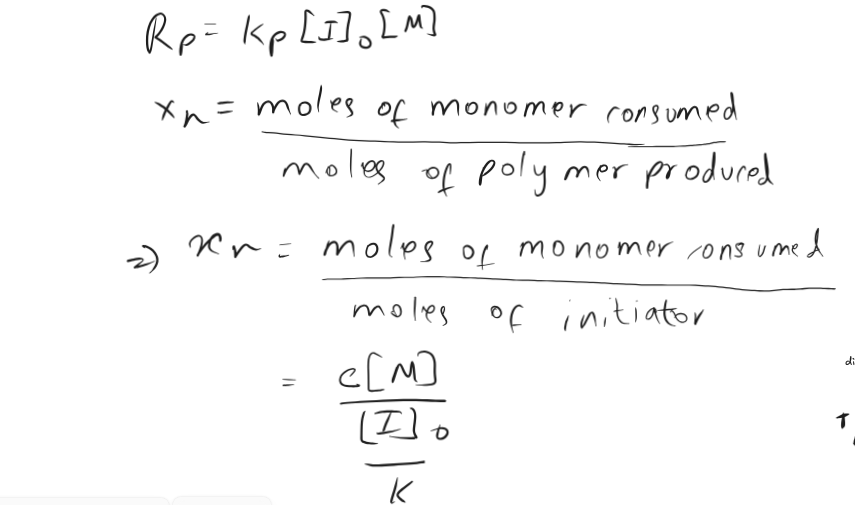 Rp = kp [I]₀ [M]
xn = moles of monomer consumed
moles of polymer produced
⇒ xn = moles of monomer consumed
moles of initiator
= c[M]
[I]₀
K
di
T